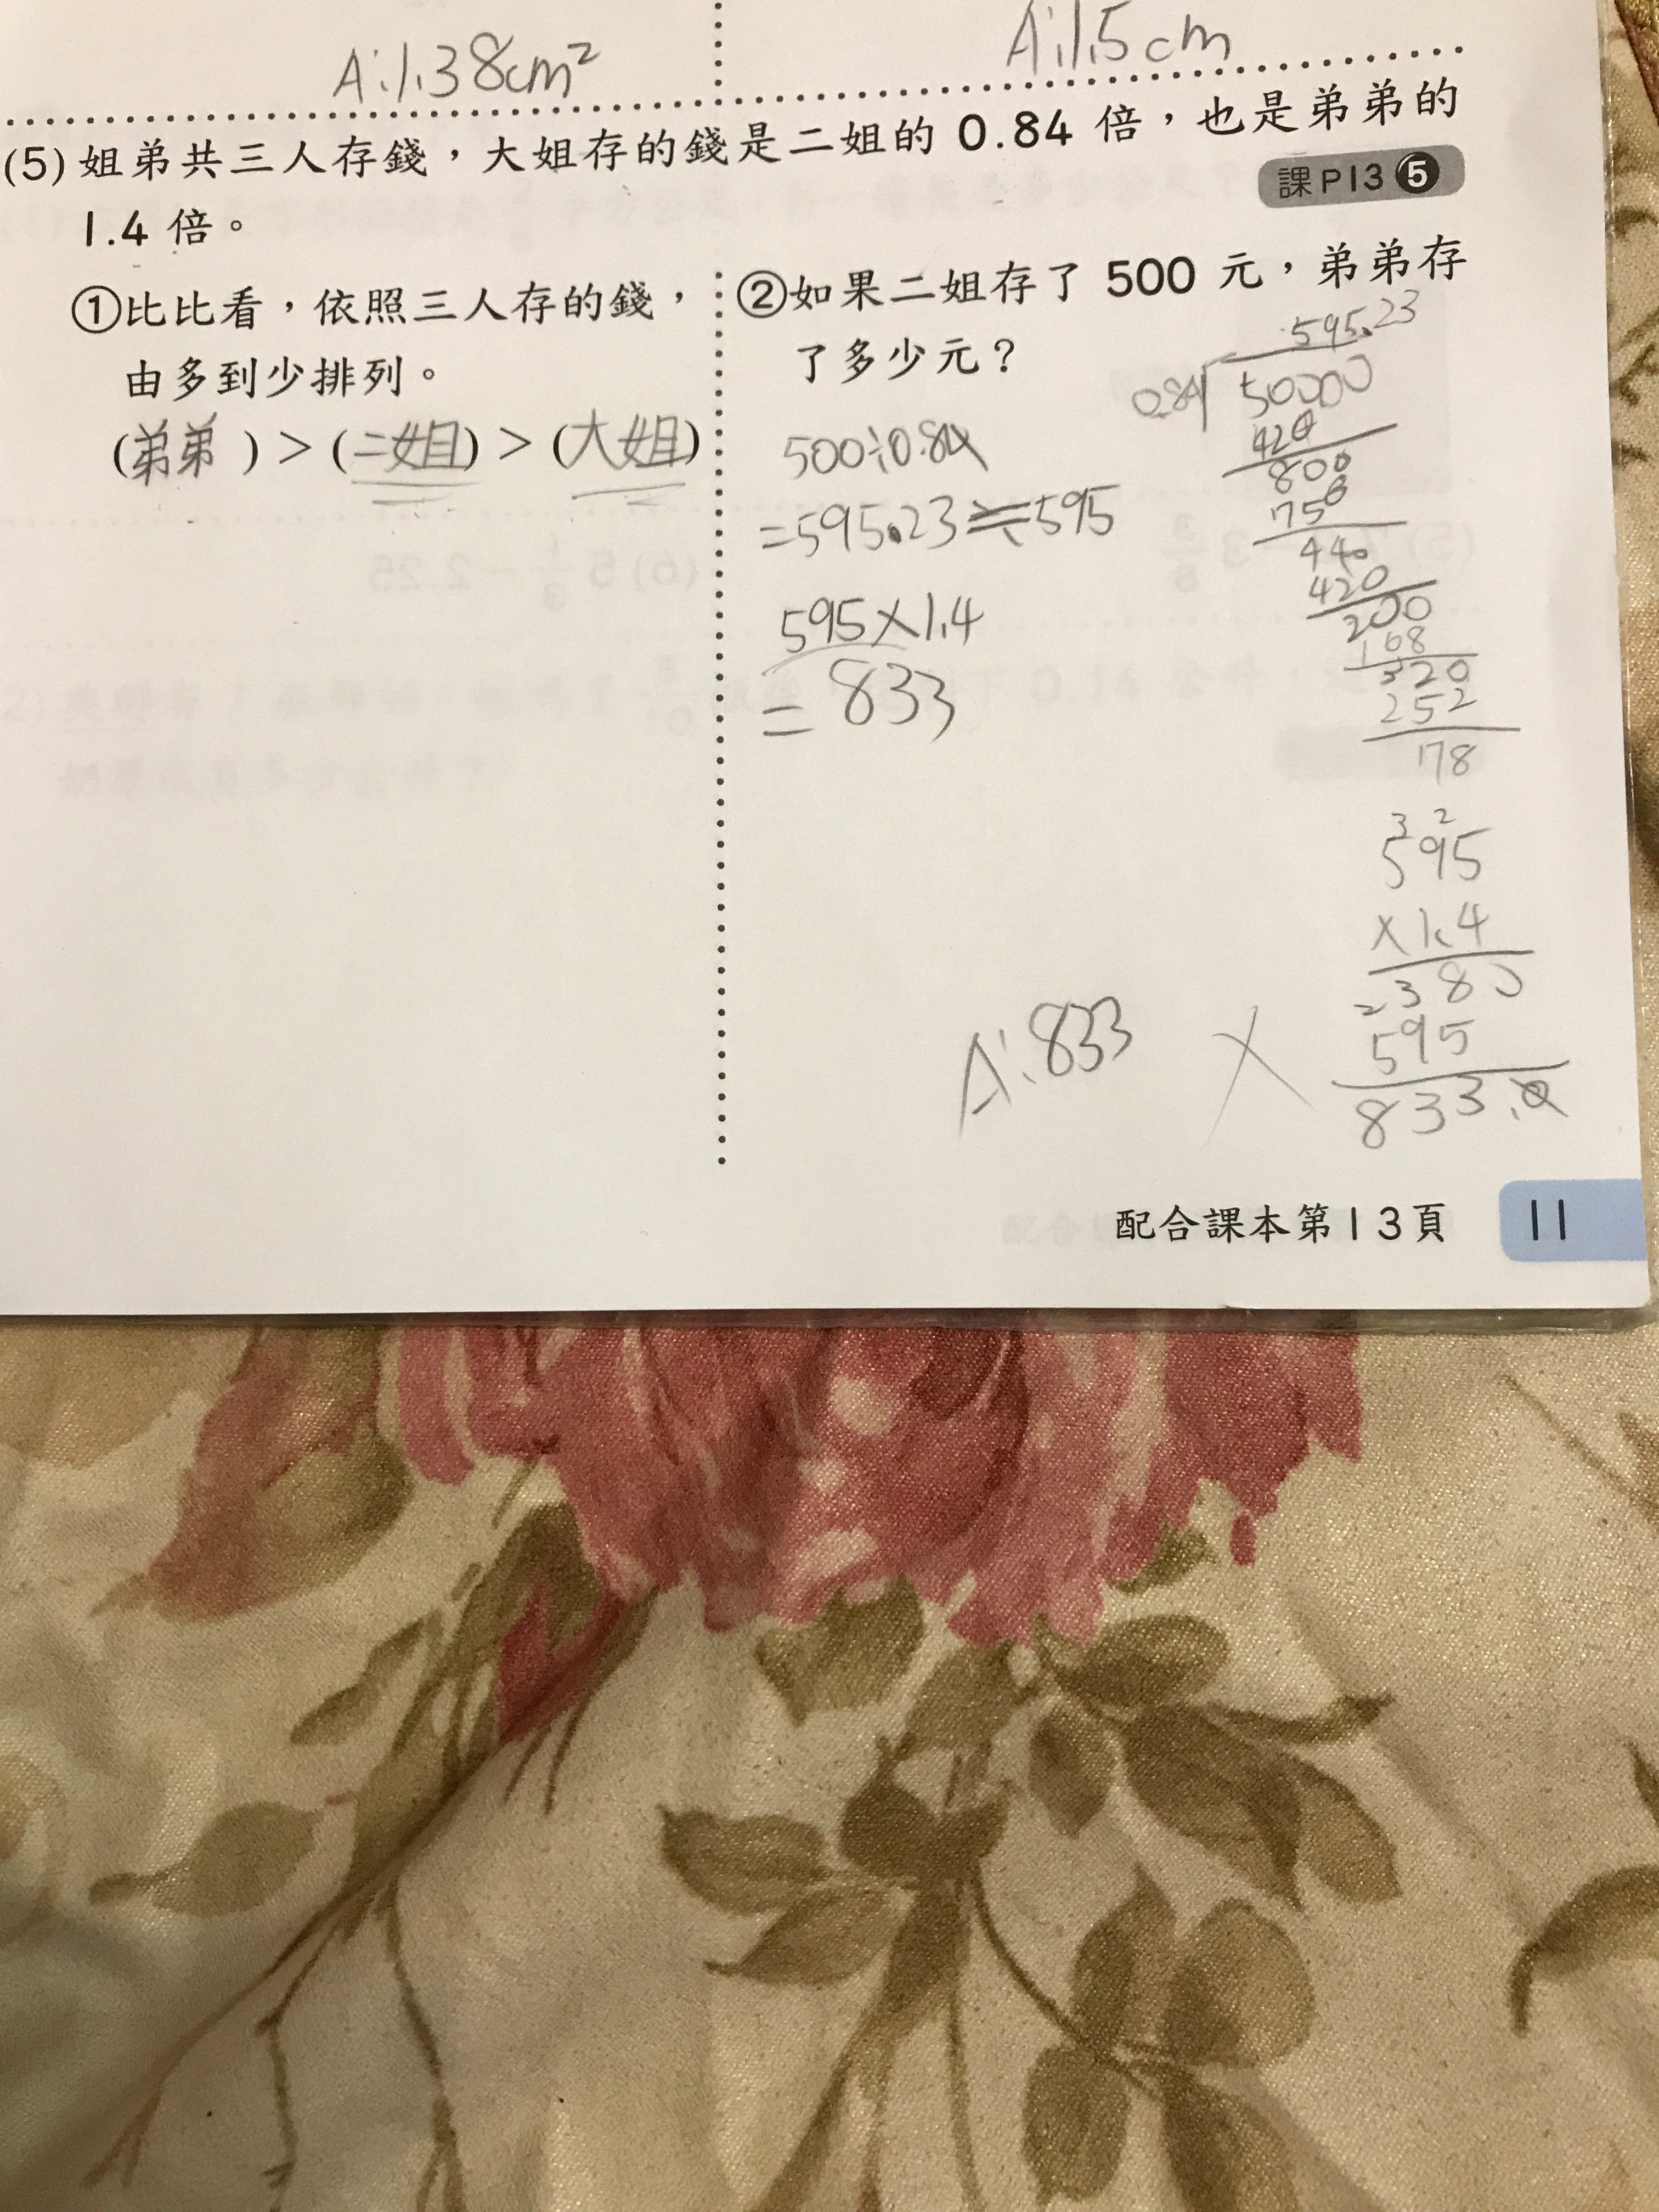 A:1.38cm²
A:1.5cm
(5)姐弟共三人存錢，大姐存的錢是二姐的 0.84 倍，也是弟弟的
1.4 倍。
課P13❺
①比比看，依照三人存的錢，
由多到少排列。
(弟弟)>(二姐)>(大姐)
②如果二姐存了 500 元，弟弟存
了多少元？
500÷0.84
=595.23≒595
595×1.4
=833
595.23
0.84 50000
420
800
756
440
420
200
168
320
252
178
3 2
595
×1.4
2380
595
833.0
A:833
配合課本第13頁
11
(5) 3 3/8
(6) 5 1/3 − 2.25